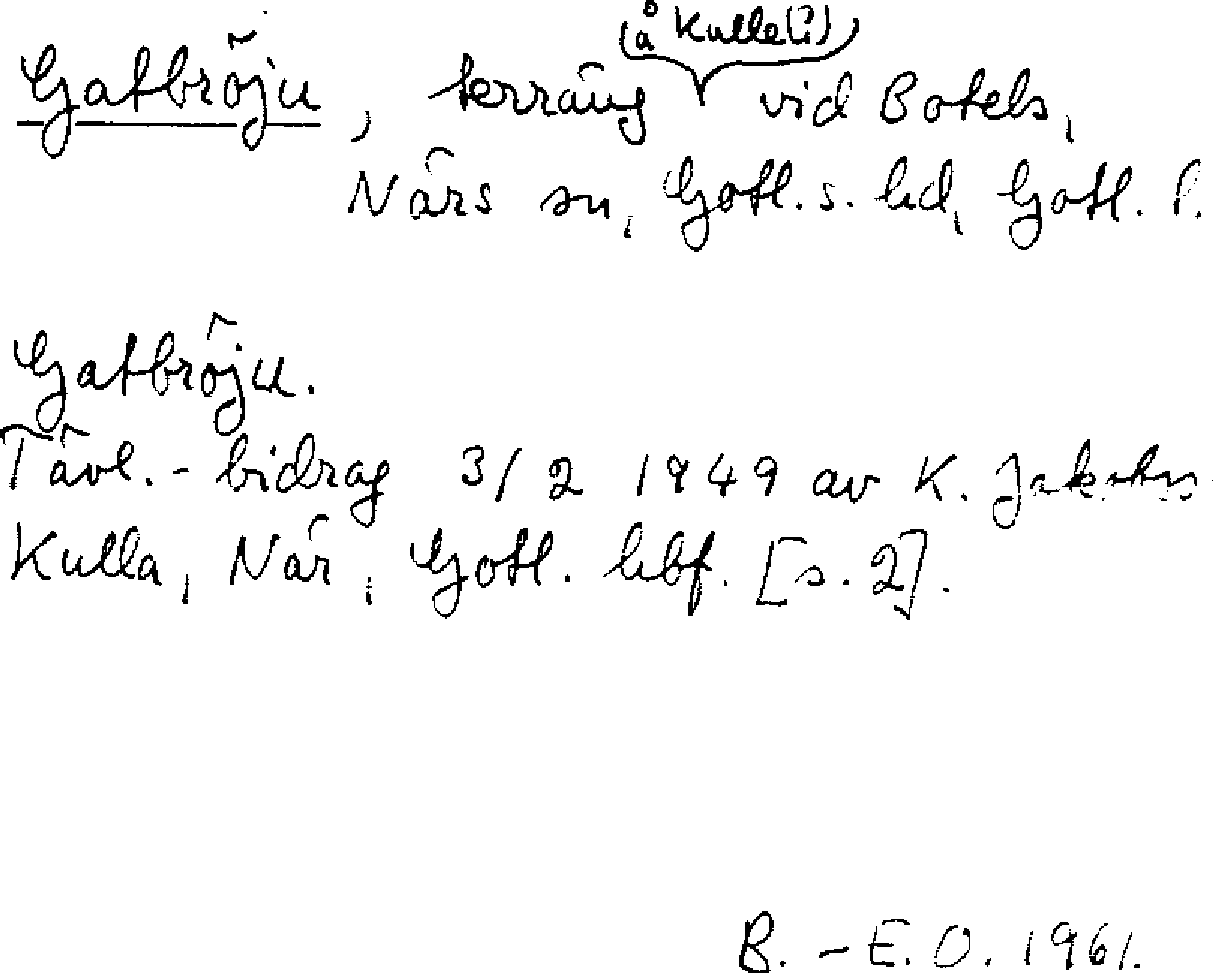 Gatbröju, terräng (å Kulle(?)) vid Botels,
När̂s sn, Gotl. s. hd, Gotl. l.
Gatbröju.
Tävl.-bidrag 3/2 1949 av K.
Kulla, När, Gotl. hbf. [s. 2].
B.-E.O. 1961.